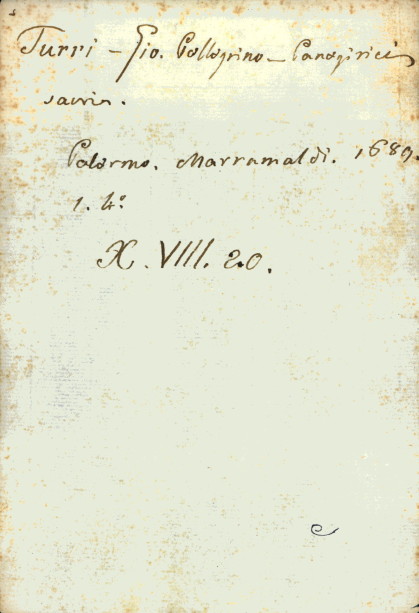 Turri - Gio. Pellegrino - Panegirici
sacri.
Palermo. Marramaldi. 1689.
1. 4°
X. VIII. 20.